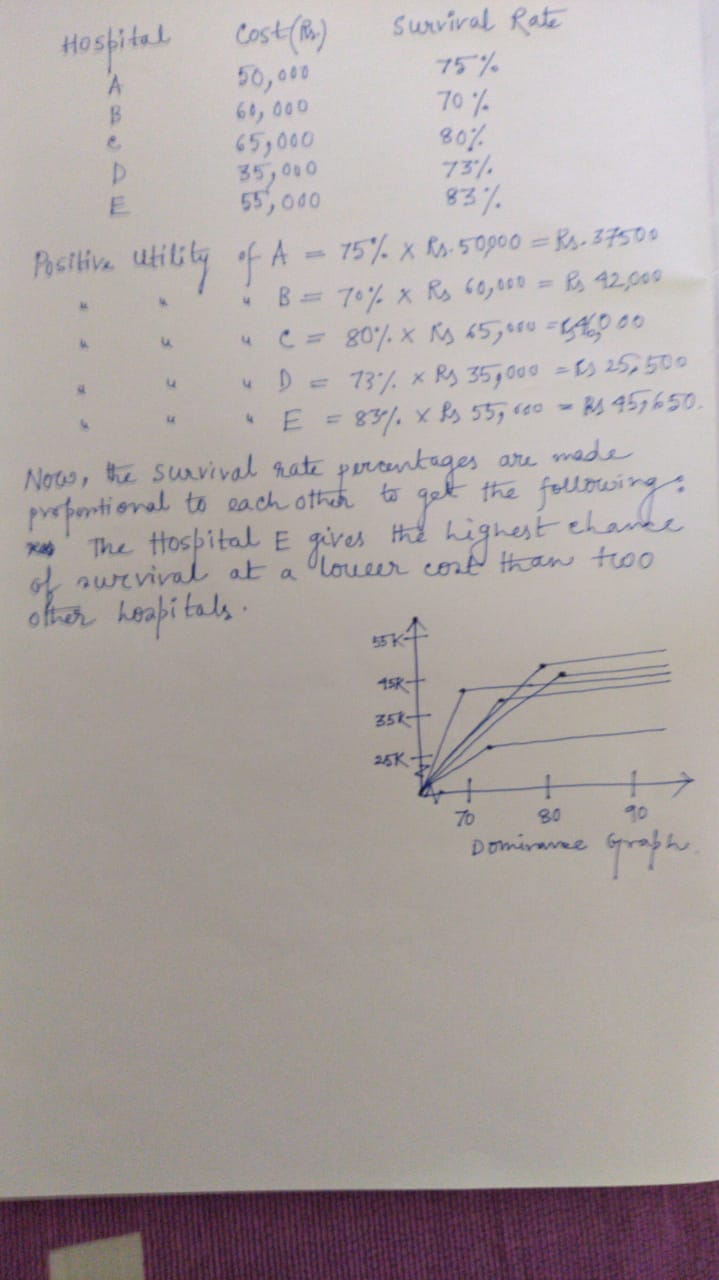 Hospital Cost (Rs.) Survival Rate
A 50,000 75%
B 60,000 70%
C 65,000 80%
D 35,000 73%
E 55,000 83%
Positive Utility of A = 75% X Rs. 50,000 = Rs. 37500
" " " B = 70% X Rs 60,000 = Rs 42,000
" " " C = 80% X Rs 65,000 = 000
" " " D = 73% X Rs 35,000 = Rs 25,500
" " " E = 83% X Rs 55,000 = Rs 45,650.
Now, the survival rate percentages are made
proportional to each other to get the following:
The Hospital E gives the highest chance
of survival at a lower cost than two
other hospitals.
55K
45K
35K
25K
70 80 90
Dominance Graph.